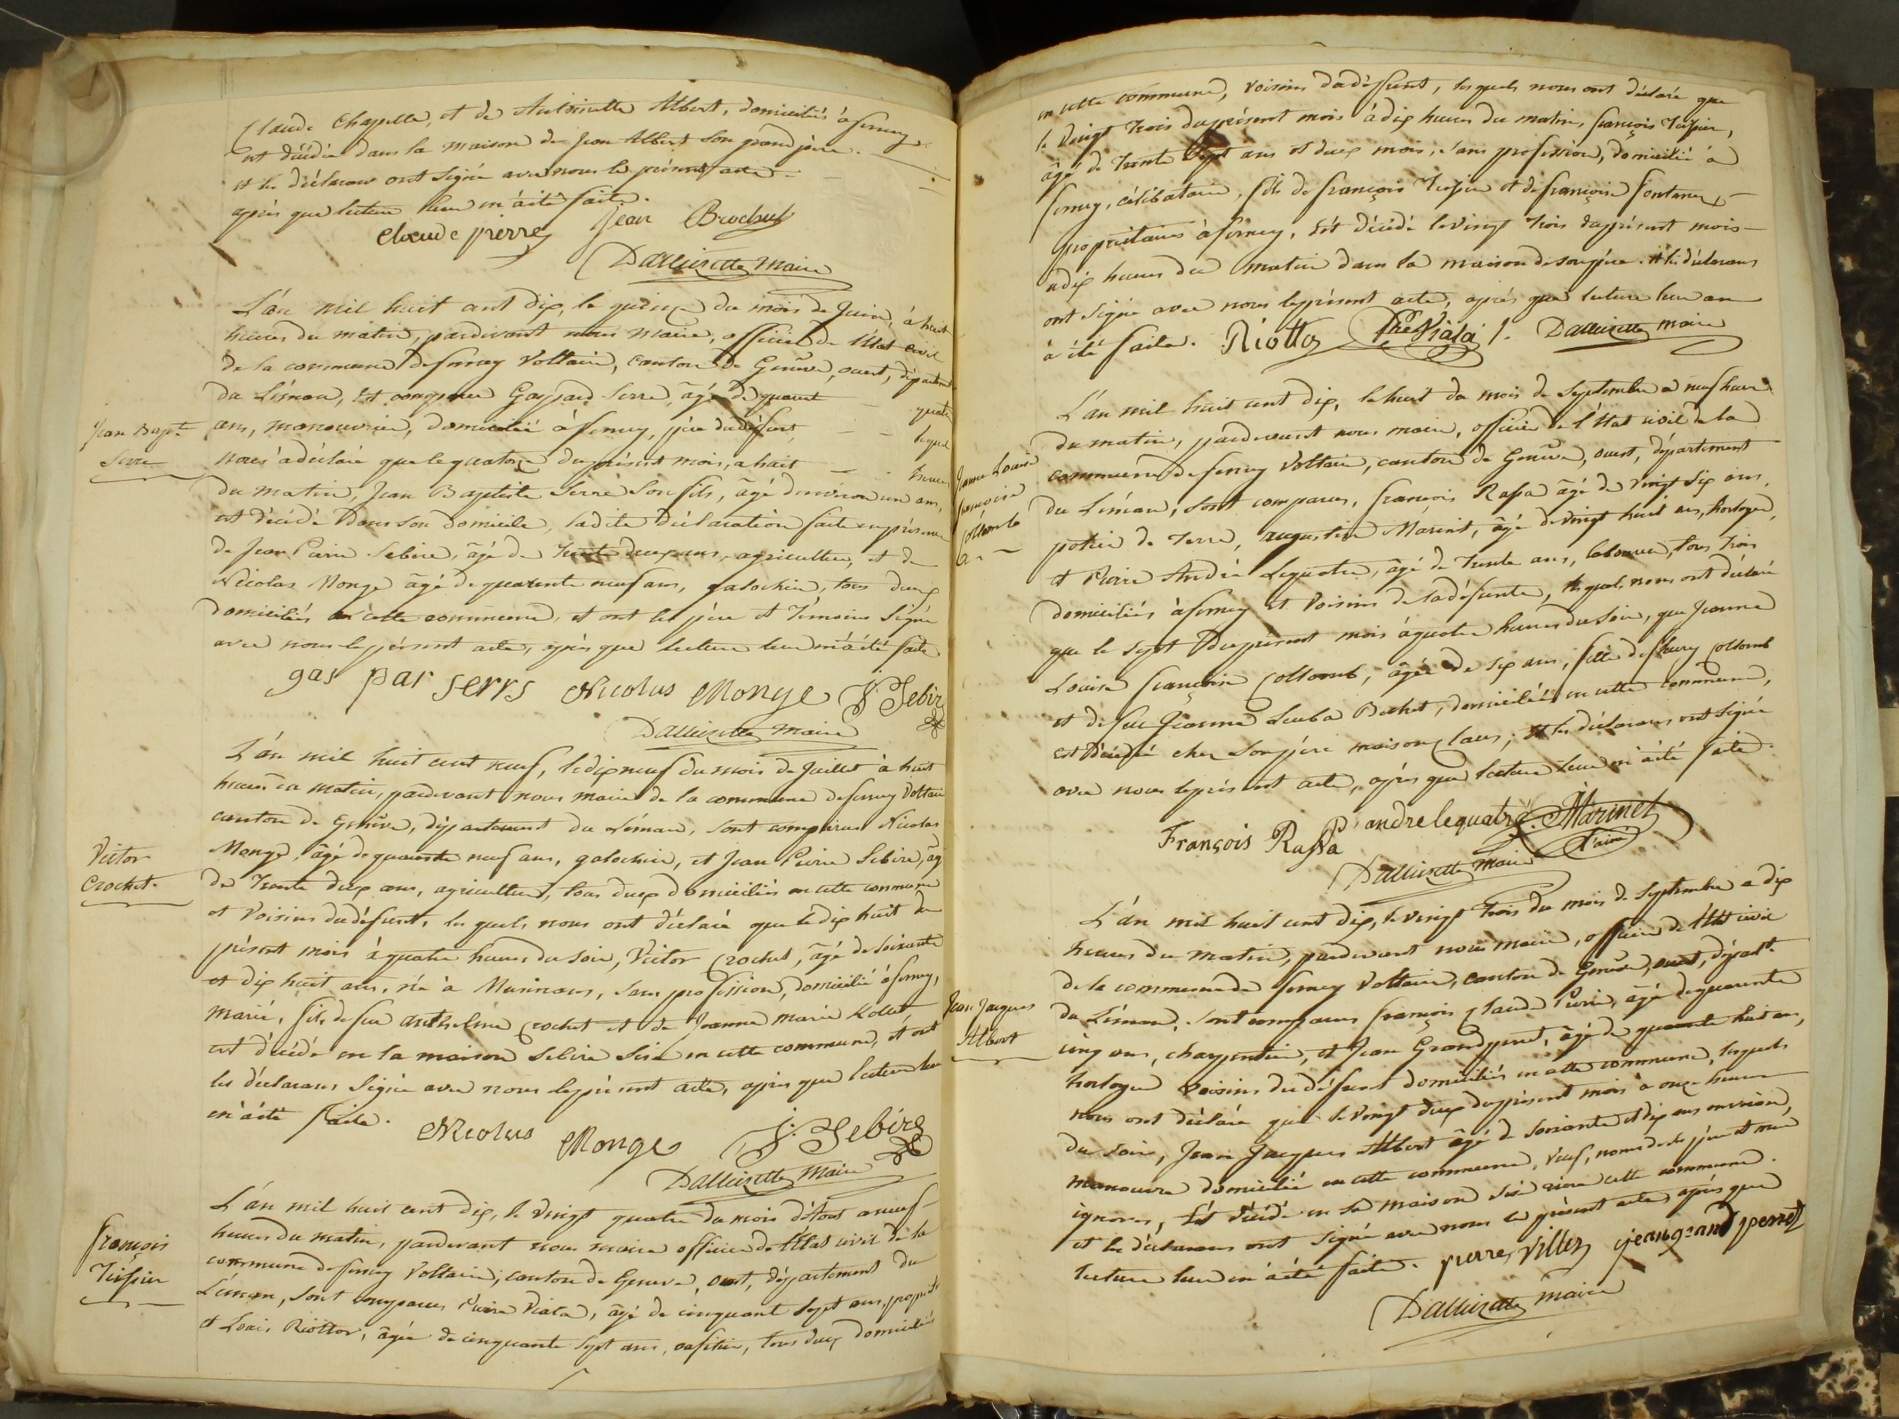 Claude Chapelle, et de Antoinette Albert, domiciliés à ferney
est décédée dans la maison de Jean Albert son grand père.
et les déclarans ont signé avec nous le présent acte
après que lecture leur en a été faite.
claude pierre Jean Brochut
Dallizette maire
L'an mil huit cent dix, le quinze du mois de Juin, à huit
heures du matin, pardevant nous maire, officier de l'état civil
de la commune de ferney Voltaire, canton de Genève, ouest, département
du Léman, est comparu Gaspard Serre, âgé de quarante quatre
Jean Bapte
Serre
ans, manouvrier, domicilié à ferney, père du défunt, lequel
nous a déclaré que le quatorze du présent mois, a huit heures
du matin, Jean Baptiste Serre son fils, âgé d'environ un an,
est décédé dans son domicile, ladite déclaration faite en présence
de Jean Pierre Sebire, âgé de trente deux ans, agriculteur, et de
Nicolas Monge âgé de quarante neuf ans, galochier, tous deux
domiciliés en cette commune, et ont les père et témoins signé
avec nous le présent acte, après que lecture leur en a été faite
gas par serrs Nicolus Monge J. P. Sebire
Dallizette maire
L'an mil huit cent neuf, le dix neuf du mois de Juillet à huit
heures du matin, pardevant nous maire de la commune de ferney Voltaire
canton de Genève, département du Léman, sont comparus Nicolas
Victor
Crochet.
Monge, âgé de quarante neuf ans, galochier, et Jean Pierre Sebire, âgé
de trente deux ans, agriculteur, tous deux domiciliés en cette commune
et voisins du défunt, les quels nous ont déclaré que le dix huit du
présent mois à quatre heures du soir, Victor Crochet, âgé de soixante
et dix huit ans, né à Murinans, sans profession, domicilié à ferney,
marié, fils de feu anthelme Crochet et de Jeanne marie
est décédé en la maison Sebire sise en cette commune, et ont
les déclarans signé avec nous le présent acte, après que lecture leur
en a été faite.
Nicolus Monge J. P. Sebire
Dallizette maire
L'an mil huit cent dix, le vingt quatre du mois d'août a neuf
heures du matin, pardevant nous maire officier de l'état civil de la
françois
Tissier
commune de ferney Voltaire, canton de Geneve, ouest, département du
Léman, sont comparus Pierre Viala, âgé de cinquante sept ans, propriet.
et Louis Riotton, âgé de cinquante sept ans, tous deux domiciliés
en cette commune, voisins du défunt, lesquels nous ont déclaré que
le vingt trois du présent mois à dix heures du matin, françois Tissier,
âgé de trente sept ans et deux mois, sans profession, domicilié à
ferney, célibataire, fils de françois Tissier et de françoise fontaine
propriétaires à ferney, est décédé le vingt trois du présent mois
a dix heures du matin dans la maison de son père. et les déclarans
ont signé avec nous le présent acte, après que lecture leur en
à été faite. Riotton Pre Viala Dallizette maire
L'an mil huit cent dix, le huit du mois de Septembre a neuf heures
du matin, pardevant nous maire, officier de l'état civil de la
Jeanne Louise
françoise
Collomb
commune de ferney Voltaire, canton de Genève, ouest, département
du Léman, sont comparus, françois Rassa âgé de vingt six ans,
potier de terre, augustin Marinet, âgé de vingt huit ans, horloger,
et Pierre André Lequatre, âgé de trente ans, laboureur, tous trois
domiciliés à ferney et voisins de la défunte, lesquels nous ont déclaré
que le sept du présent mois à quatre heures du soir, que Jeanne
Louise françoise Collomb, âgée de six ans, fille de fleury Collomb
et de feue Jeanne Bechet, domiciliés en cette commune,
est décédée chez son père maison, et les déclarans ont signé
avec nous le présent acte, après que lecture leur en a été faite.
François Rassa P. andre lequatre A. Marinet
l'ainé
Dallizette maire
L'an mil huit cent dix, le vingt trois du mois de Septembre a dix
heures du matin, pardevant nous maire, officier de l'état civil
de la commune de ferney Voltaire, canton de Genève, ouest, départ.t
Jean Jaques
Albert
du Léman, sont comparus françois Claude Pierre, âgé de quarante
cinq ans, charpentier, et Jean Grandperret, âgé de quarante huit ans,
horloger voisins du défunt domiciliés en cette commune, lesquels
nous ont déclaré que le vingt deux du présent mois à onze heures
du soir, Jean Jacques Albert âgé de soixante et dix ans environ,
manoeuvre domicilié en cette commune, veuf, noms de ses père et mère
ignorés, est décédé en sa maison sise riere cette commune.
et les déclarans ont signé avec nous le présent acte, après que
lecture leur en a été faite. pierre Villez jean grand perret
Dallizette maire